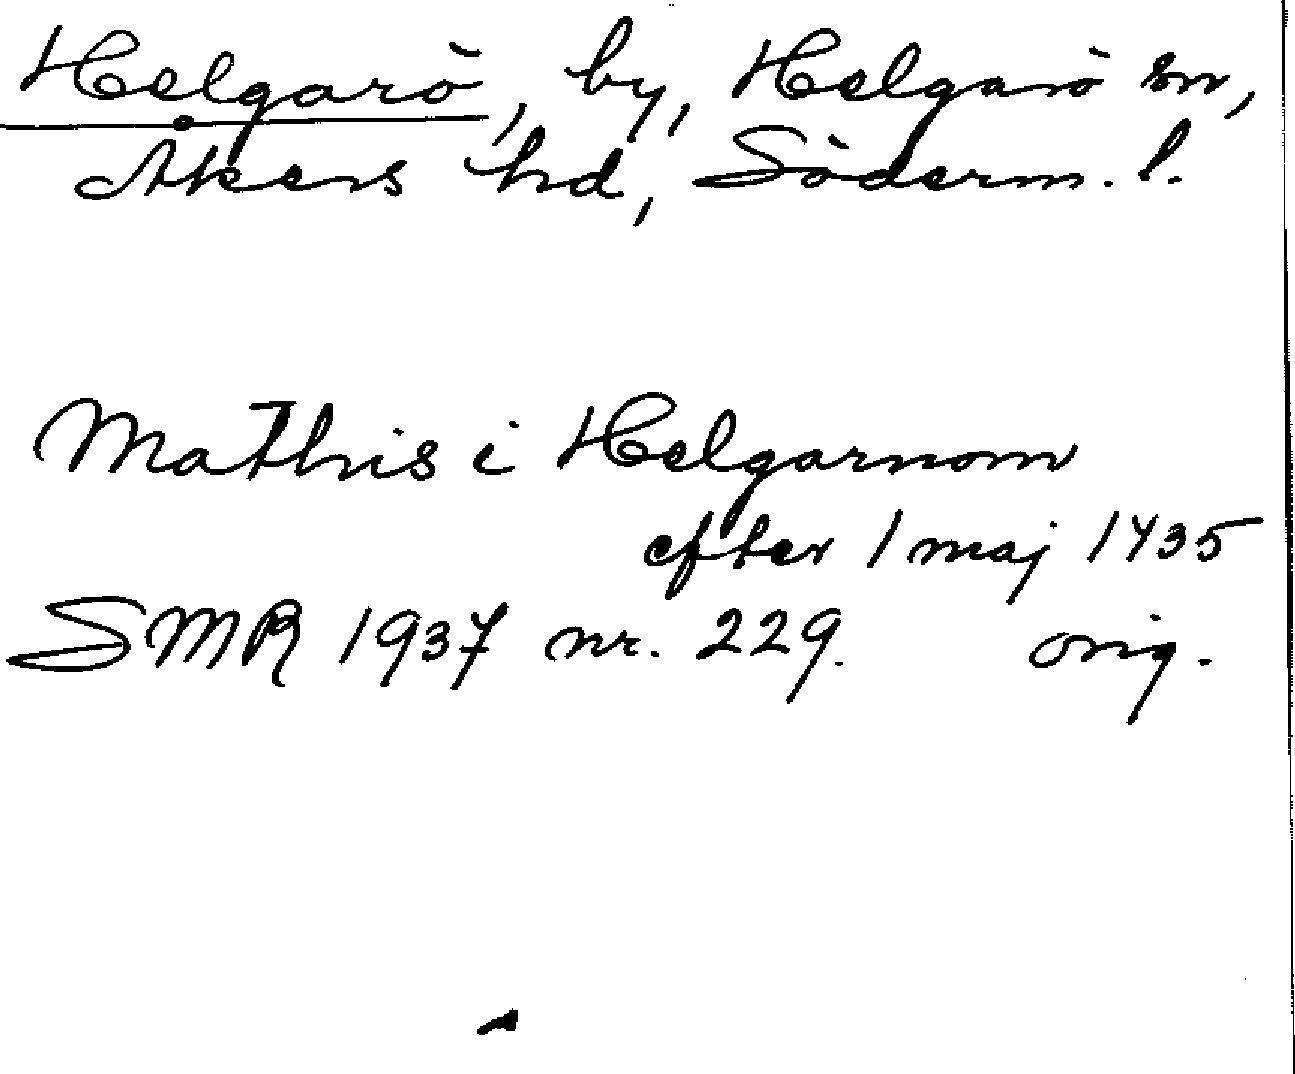 Helgarö, by, Helgarö sn,
Åkers hd, Söderm. l.
Mathis i Helgarnom
efter 1 maj 1435
SMR 1937 nr. 229. orig.